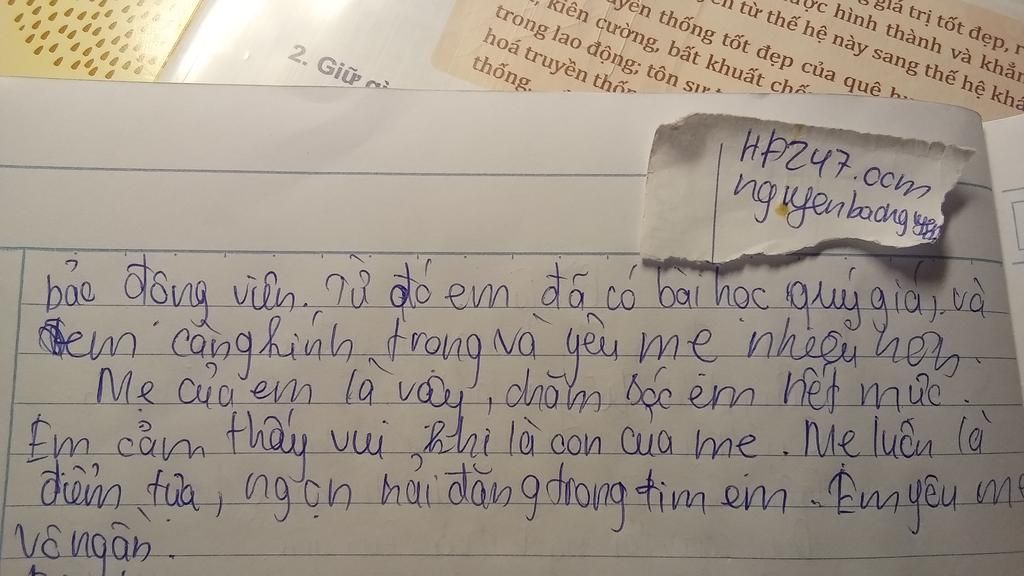 giá trị tốt đẹp,
ợc hình thành và khẳn
yền thống tốt đẹp của quê
từ thế hệ này sang thế hệ khá
kiên cường, bất khuất chố
trong lao động; tôn sư
hoá truyền thốn
thống.
2. Giữ gì
HP247.com
nguyenbaongyen
bảo động viên. Từ đó em đã có bài học quý giá, và
em càng kính trọng và yêu mẹ nhiều hơn.
Mẹ của em là vậy, chăm sóc em hết mức.
Em cảm thấy vui khi là con của mẹ. Mẹ luôn là
điểm tựa, ngọn hải đăng trong tim em. Em yêu mẹ
vô ngần.